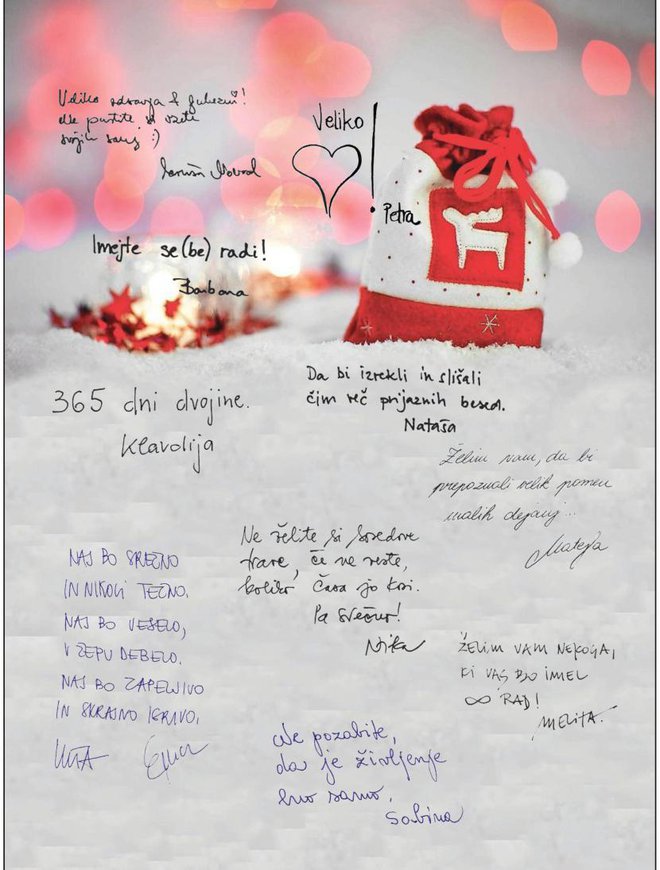 Veliko zdravja & ljubezni!
ne pustite si vzeti
svojih sanj :)
Novad
Veliko
!
Petra
Imejte se(be) radi!
Barbara
365 dni dvojine.
Klavdija
Da bi izrekli in slišali
čim več prijaznih besed.
Nataša
Želim vam, da bi
prepoznali velik pomen
malih dejanj...
Mateja
Ne želite si sosedove
trave, če ne veste,
koliko časa jo kosi.
Pa srečno!
Nika
NAJ BO SREČNO
IN NIKOLI TEČNO.
NAJ BO VESELO,
V ŽEPU DEBELO.
NAJ BO ZAPELJIVO
IN SKRAJNO IGRIVO.
ŽELIM VAM NEKOGA,
KI VAS BO IMEL
∞ RAD!
MELITA.
Ne pozabite,
da je življenje
eno samo.
Sabina